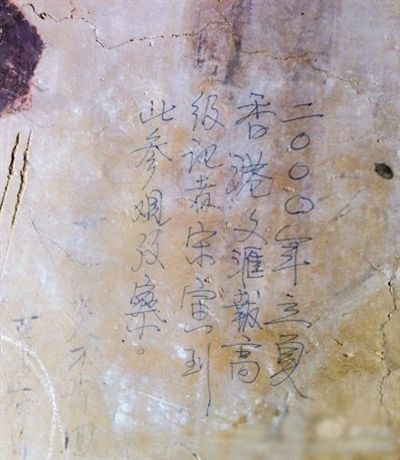 二〇〇〇年立夏
香港文滙報高
级记者宋寅到
此参观考察。